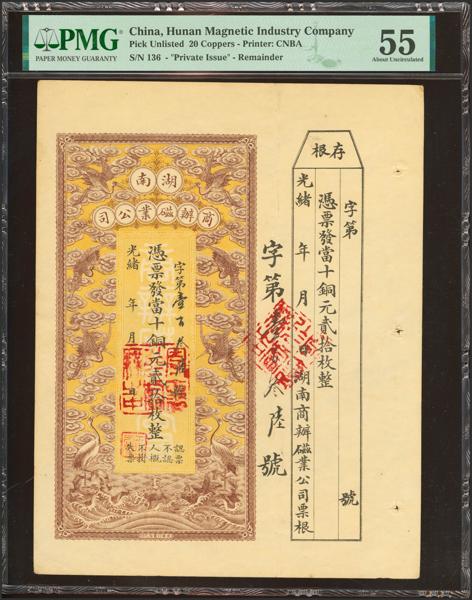 PMG
PAPER MONEY GUARANTY
China, Hunan Magnetic Industry Company
Pick Unlisted  20 Coppers - Printer: CNBA
S/N 136  - "Private Issue" - Remainder
55
About Uncirculated
湖南
商辦磁業公司
字第壹百叁拾陸號
憑票發當十銅元貳拾枚整
光緒 年 月 日
認票不認人
概不掛失票
字第壹百叁陸號
存根
字第 號
憑票發當十銅元貳拾枚整
光緒 年 月 日湖南商辦磁業公司票根